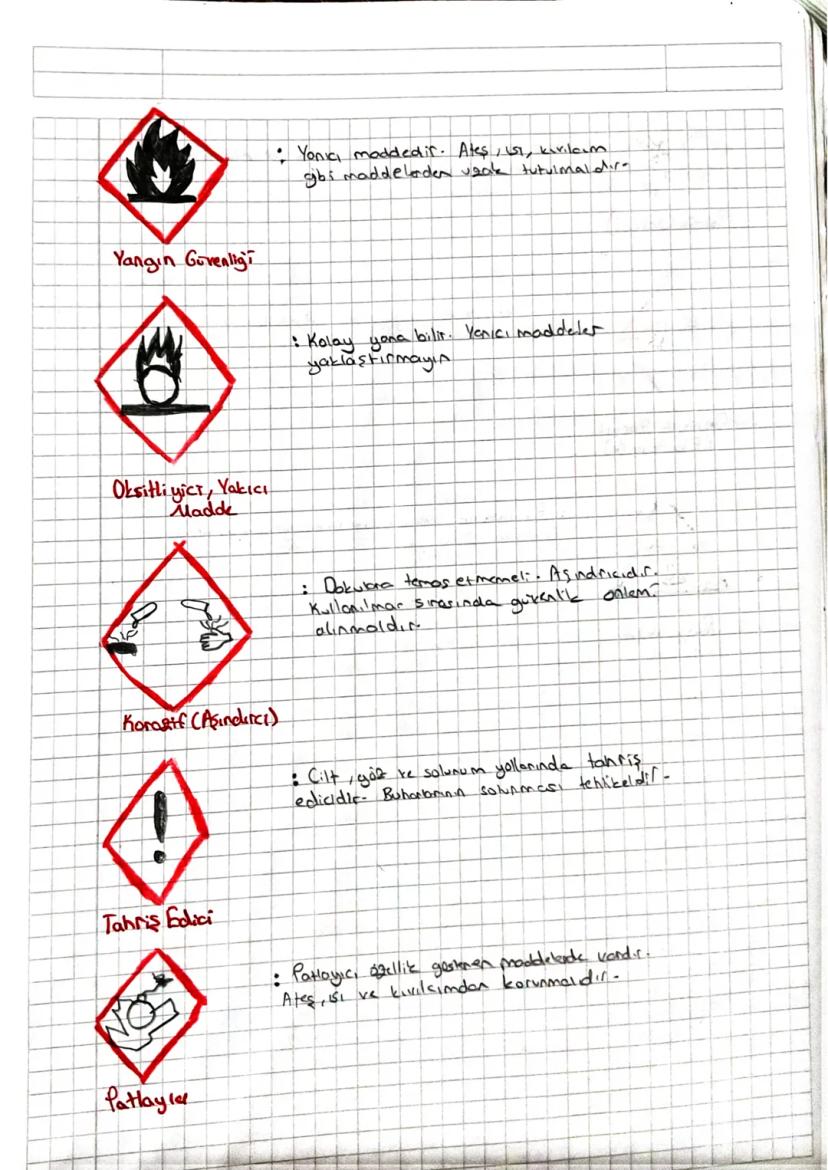 : Yanıcı maddedir. Ateş, ısı, kıvılcım
gibi maddelerden uzak tutulmalıdır.
Yangın Güvenliği
: Kolay yana bilir. Yanıcı maddeler
yaklaştırmayın
Oksitliyici, Yakıcı
Madde
: Dokulara temas etmemeli. Aşındırıcıdır.
Kullanılmar sırasında güvenlik önlem.
alınmalıdır.
Korozif (Aşındırıcı)
: Cilt, göz ve solunum yollarında tahriş
edicidir. Buharlarının solunması tehlikelidir.
Tahriş Edici
: Patlayıcı özellik gösteren maddelerde vardır.
Ateş, ısı ve kıvılcımdan korunmalıdır.
Patlayıcı